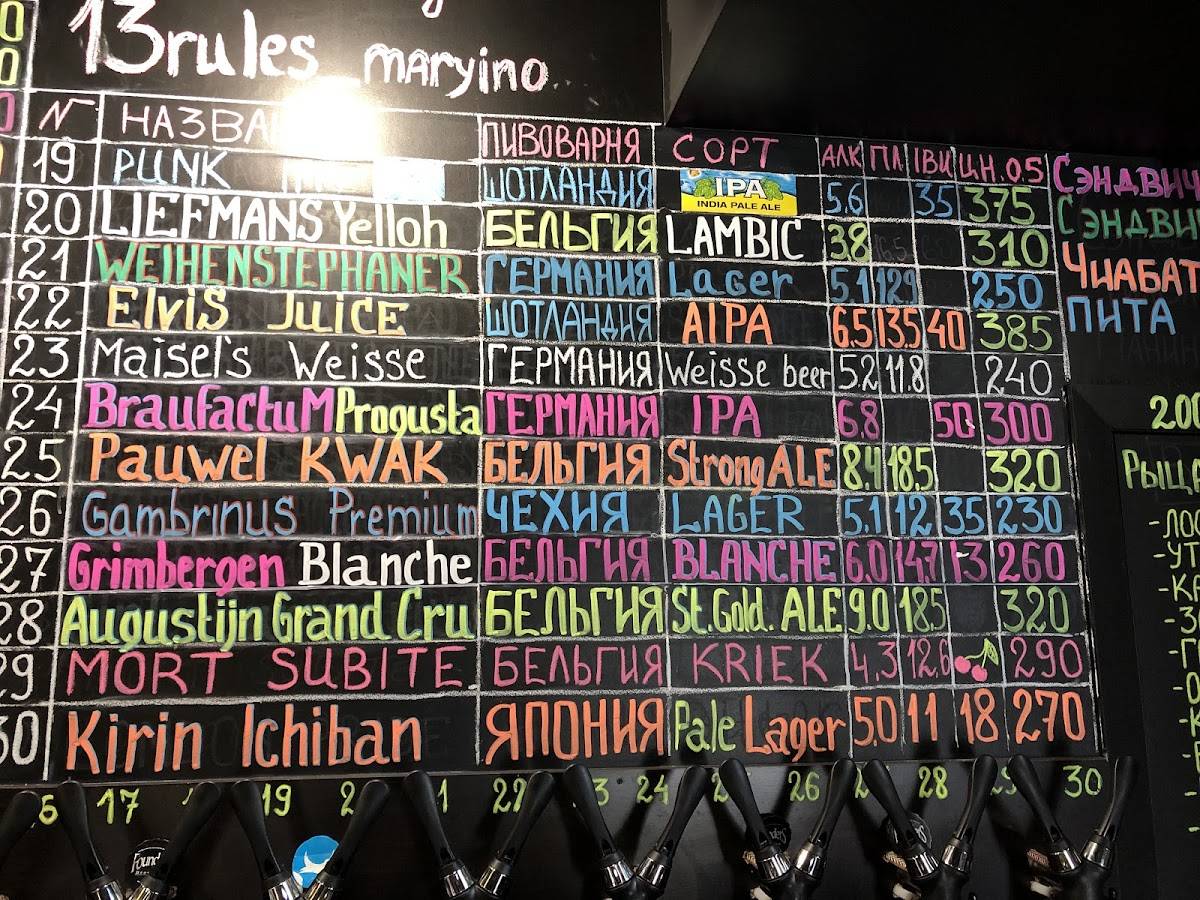 13rules maryino
N НАЗВА ПИВОВАРНЯ СОРТ АЛК ПЛ IBU Ц.Н. 0.5
19 PUNK ШОТЛАНДИЯ IPA INDIA PALE ALE 5.6 35 375
20 LIEFMANS Yelloh БЕЛЬГИЯ LAMBIC 3.8 310
21 WEIHENSTEPHANER ГЕРМАНИЯ Lager 5.1 12.9 250
22 ElviS JuiCE ШОТЛАНДИЯ AIPA 6.5 13.5 40 385
23 Maisel's Weisse ГЕРМАНИЯ Weisse beer 5.2 11.8 240
24 BraufactuM Progusta ГЕРМАНИЯ IPA 6.8 50 300
25 Pauwel KWAK БЕЛЬГИЯ Strong ALE 8.4 18.5 320
26 Gambrinus Premium ЧЕХИЯ LAGER 5.1 12 35 230
27 Grimbergen Blanche БЕЛЬГИЯ BLANCHE 6.0 14.7 13 260
28 Augustijn Grand Cru БЕЛЬГИЯ St. Gold. ALE 9.0 18.5 320
29 MORT SUBITE БЕЛЬГИЯ KRIEK 4.3 12.6 290
30 Kirin Ichiban ЯПОНИЯ Pale Lager 5.0 11 18 270
СЭНДВИЧ
СЭНДВИ
ЧИАБАТ
ПИТА
200
РЫЦА
-ЛОС
-УТ
-К
17 19 24 26 28 30
Found